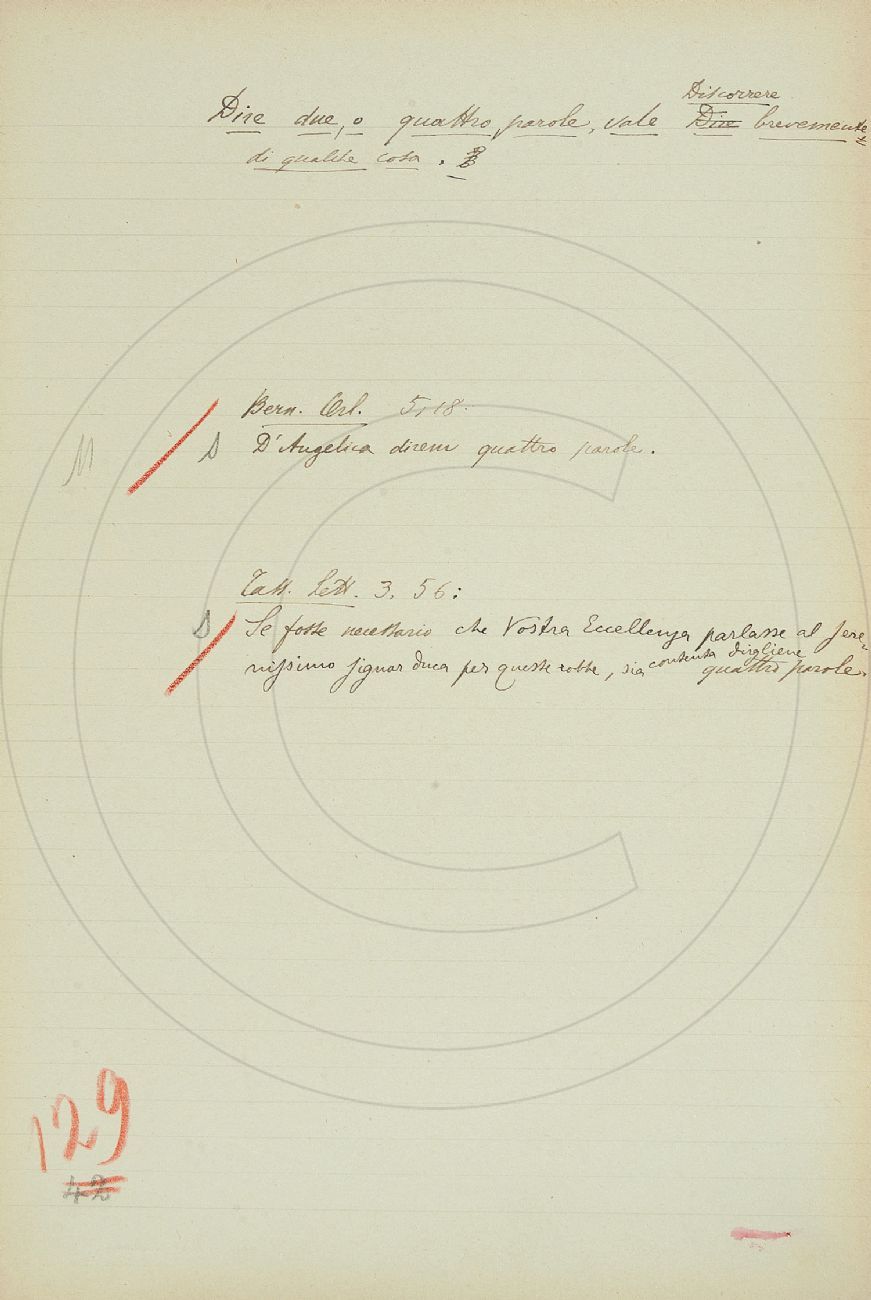 Discorrere
Dire due, o quattro parole, vale Dire brevemente
di qualche cosa.
Bern. Orl. 5, 18.
S D'Angelica direm quattro parole.
Tass. Lett. 3, 56:
S Se fosse necessario che Vostra Eccellenza parlasse al sere-
contenta dirgliene
nissimo signor duca per queste robbe, sia quattro parole.
129
42